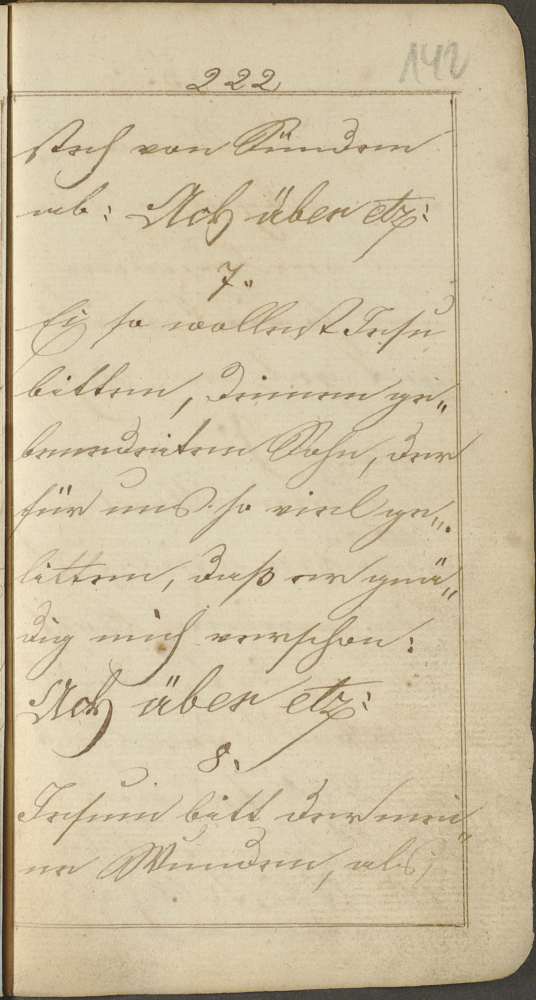 222
142
steh von Sünden
ab: Ach über etz:
7.
Ei so wollest Jesu
bitten, deinen ge„
benedeiten Sohn, der
für uns so viel ge„
litten, daß er gnä„
dig mich verschon:
Ach über etz:
8.
Jesum bitt der mei„
ne Wunden, als